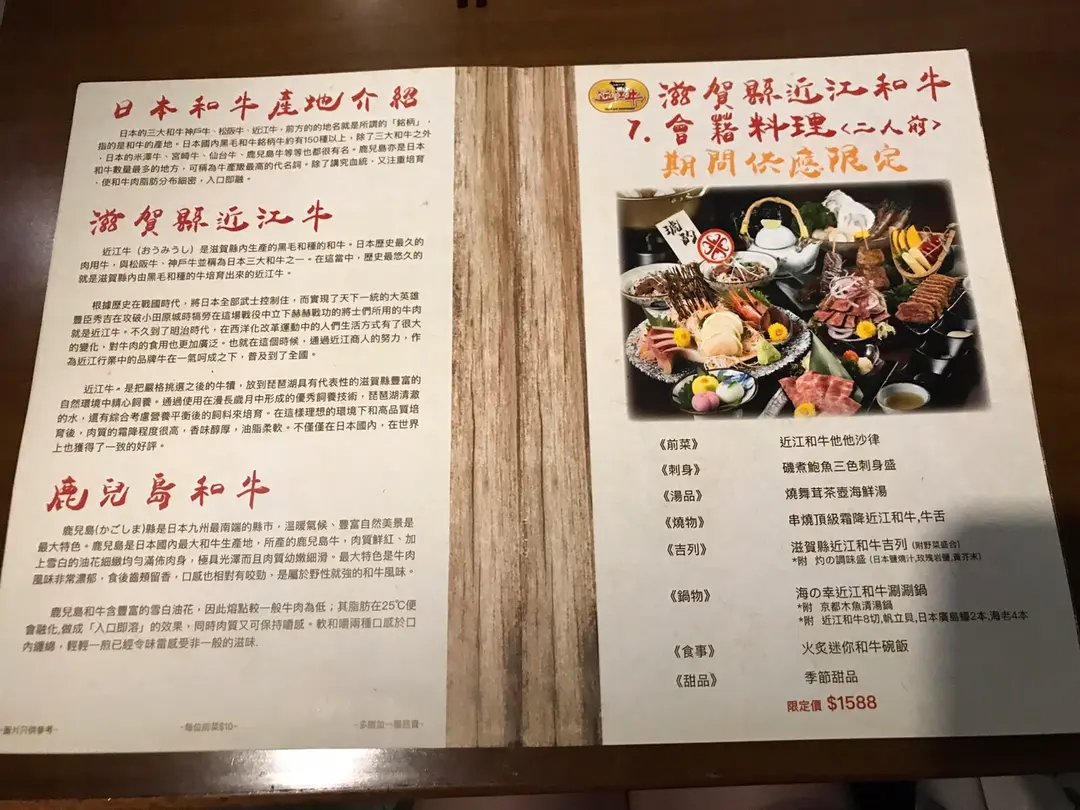 日本和牛產地介紹
日本的三大和牛神戶牛、松阪牛、近江牛，前方的的地名就是所謂的「銘柄」，
指的是和牛的產地。日本國內黑毛和牛銘柄牛約有150種以上，除了三大和牛之外
，日本的米澤牛、宮崎牛、仙台牛、鹿兒島牛等等也都很有名。鹿兒島亦是日本
和牛數量最多的地方，可稱為牛產嫩最高的代名詞。除了講究血統，又注重培育
，使和牛肉脂肪分布細密，入口即融。
滋賀縣近江牛
近江牛（おうみうし）是滋賀縣內生產的黑毛和種的和牛。日本歷史最久的
肉用牛，與松阪牛、神戶牛並稱為日本三大和牛之一。在這當中，歷史最悠久的
就是滋賀縣內由黑毛和種的牛培育出來的近江牛。
根據歷史在戰國時代，將日本全部武士控制住，而實現了天下一統的大英雄
豐臣秀吉在攻破小田原城時犒勞在這場戰役中立下赫赫戰功的將士們所用的牛肉
就是近江牛。不久到了明治時代，在西洋化改革運動中的人們生活方式有了很大
的變化，對牛肉的食用也更加廣泛。也就在這個時候，通過近江商人的努力，作
為近江行業中的品牌牛在一氣呵成之下，普及到了全國。
近江牛，是把嚴格挑選之後的牛犢，放到琵琶湖具有代表性的滋賀縣豐富的
自然環境中精心飼養。通過使用在漫長歲月中形成的優秀飼養技術，琵琶湖清澈
的水，還有綜合考慮營養平衡後的飼料來培育。在這樣理想的環境下和高品質培
育後，肉質的霜降程度很高，香味醇厚，油脂柔軟。不僅僅在日本國內，在世界
上也獲得了一致的好評。
鹿兒島和牛
鹿兒島(かごしま)縣是日本九州最南端的縣市，溫暖氣候、豐富自然美景是
最大特色。鹿兒島是日本國內最大和牛生產地，所產的鹿兒島牛，肉質鮮紅、加
上雪白的油花細緻均勻滿佈肉身，極具光澤而且肉質幼嫩細滑。最大特色是牛肉
風味非常濃郁，食後齒頰留香，口感也相對有咬勁，是屬於野性就強的和牛風味。
鹿兒島和牛含豐富的雪白油花，因此熔點較一般牛肉為低；其脂肪在25℃便
會融化,做成「入口即溶」的效果，同時肉質又可保持嚼感。軟和嚼兩種口感於口
內纏綿，輕輕一煎已經令味雷感受非一般的滋味.
-圖片只供參考-
-每位前菜$10-
-多謝加一服務費-
滋賀縣近江和牛
7. 會藉料理<二人前>
期間供應限定
琥酌
《前菜》 近江和牛他他沙律
《刺身》 磯煮鮑魚三色刺身盛
《湯品》 燒舞茸茶壺海鮮湯
《燒物》 串燒頂級霜降近江和牛,牛舌
《吉列》 滋賀縣近江和牛吉列 (附野菜盛合)
*附 灼の調味盛 (日本鹽燒汁,玫瑰岩鹽,黃芥末)
《鍋物》 海の幸近江和牛涮涮鍋
*附 京都木魚清湯鍋
*附 近江和牛8切,帆立貝,日本廣島蠔2本,海老4本
《食事》 火炙迷你和牛碗飯
《甜品》 季節甜品
限定價 $1588